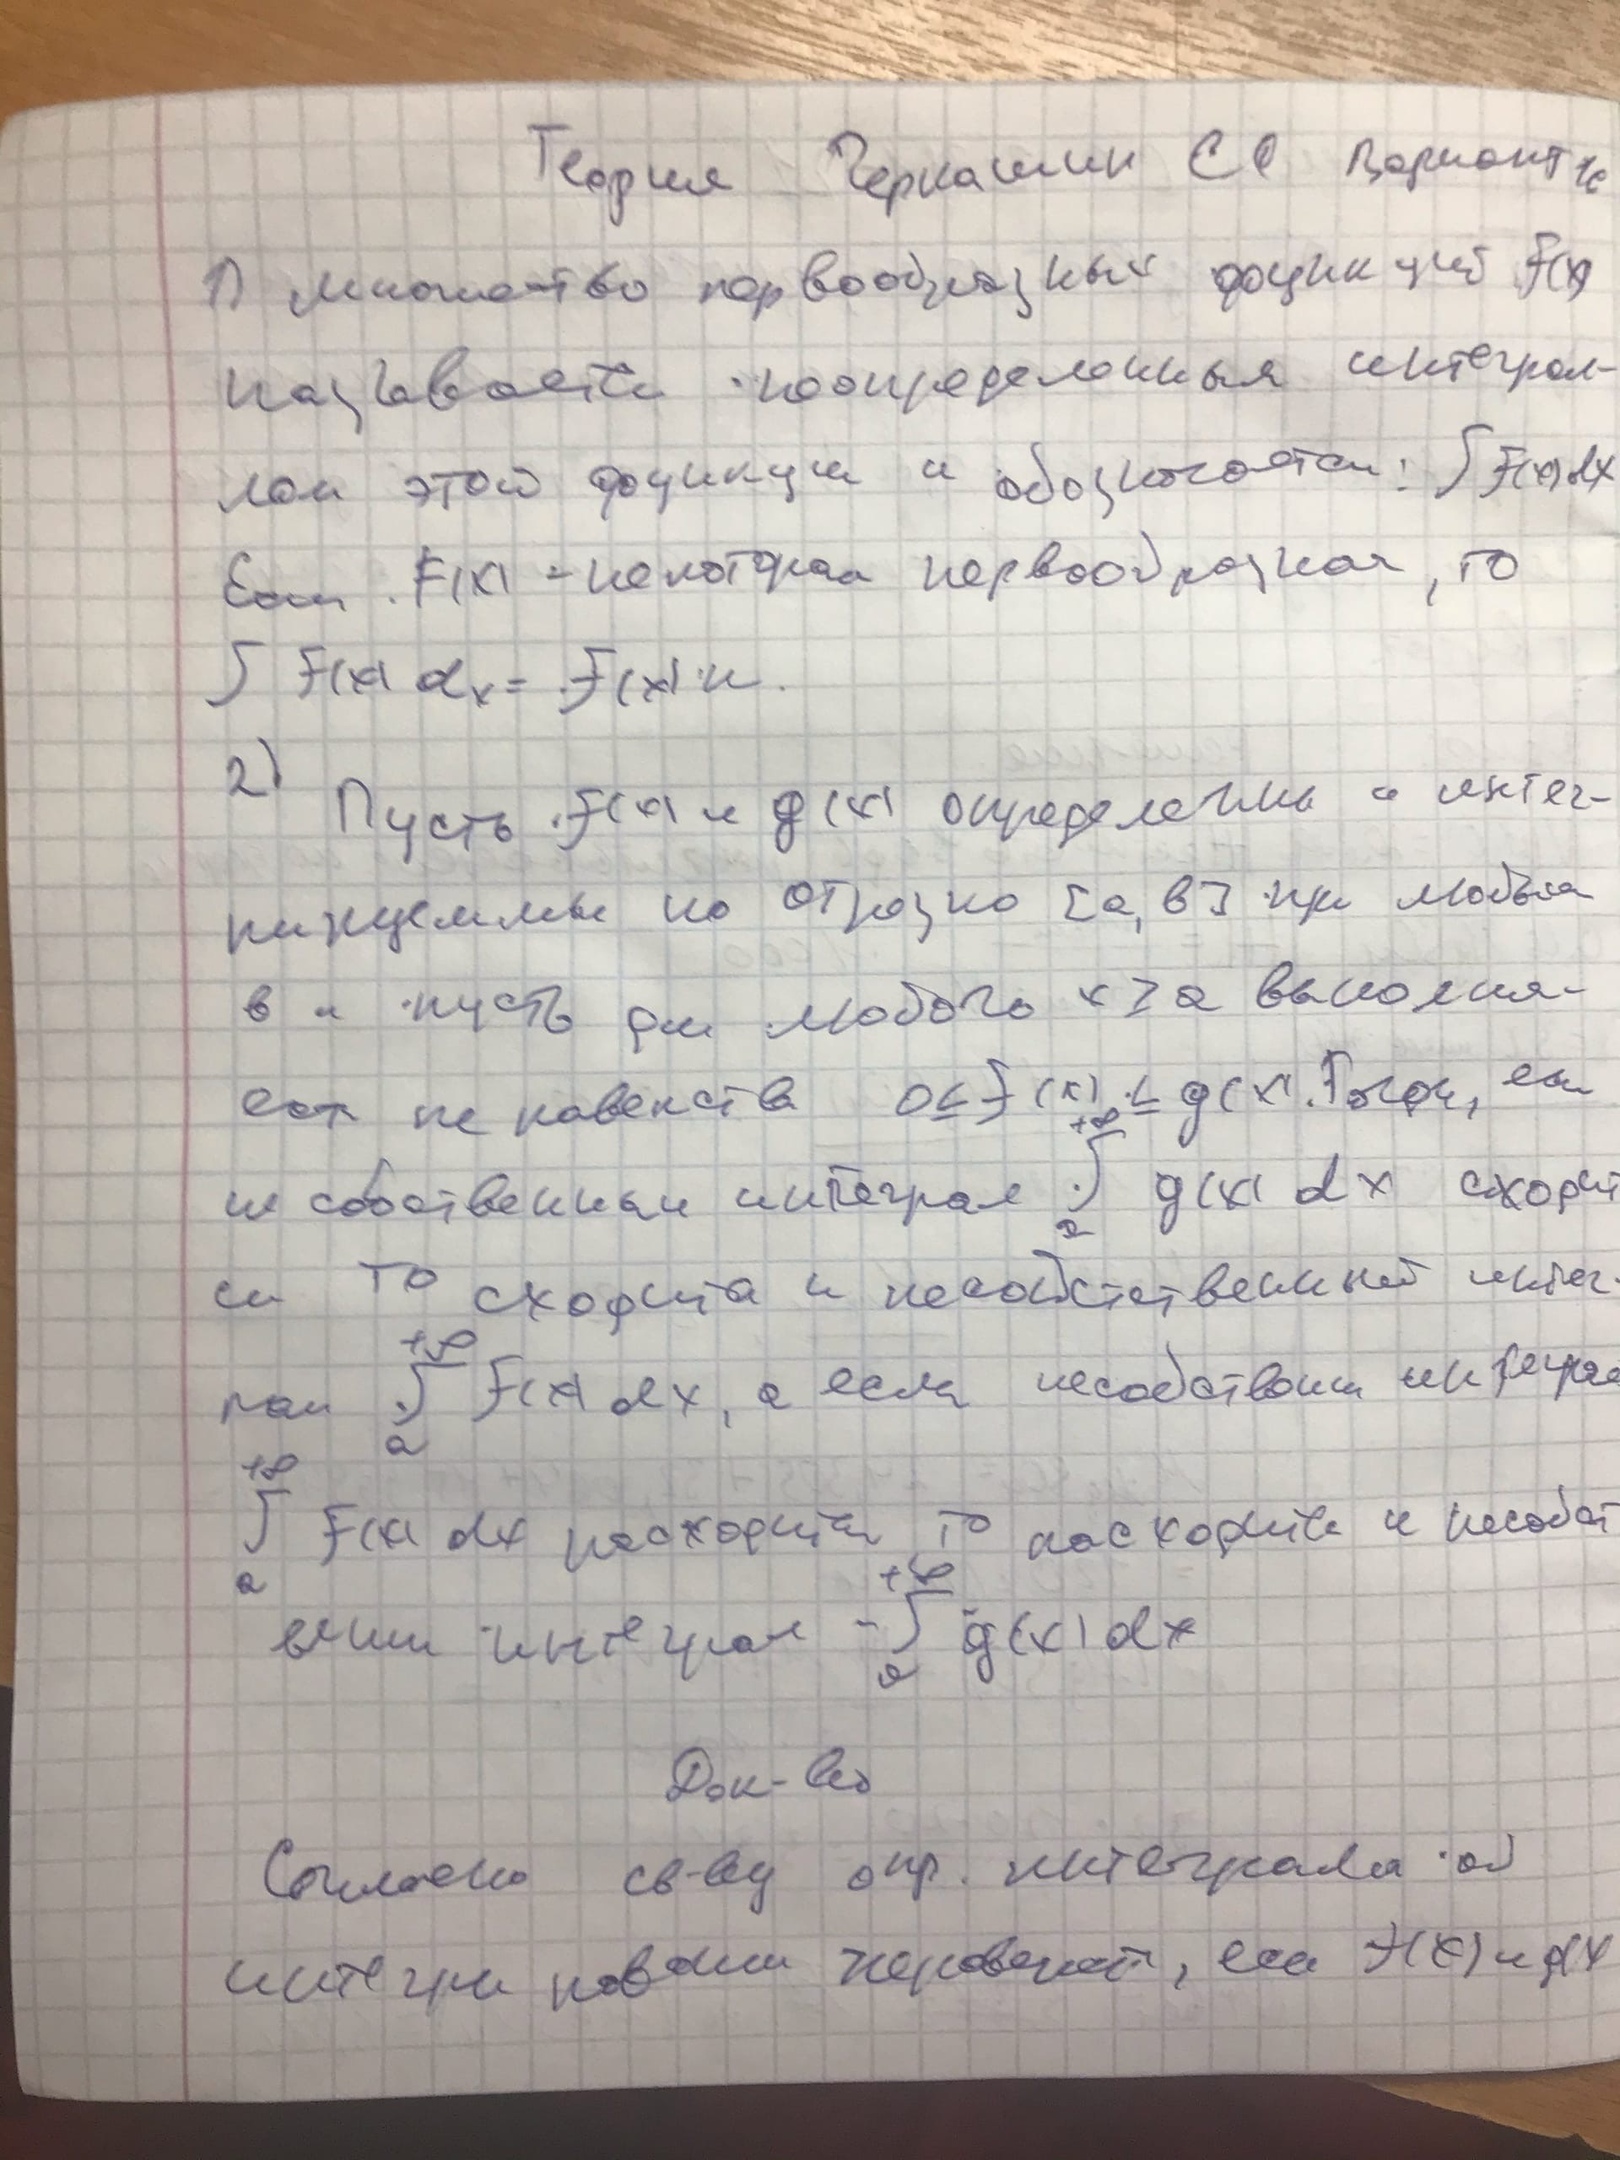 Теория Черкашин СС Вариант
1) множество первообразных функций F(x)
называется неопределенным интеграл-
лом этой функции и обозначается: ∫ F(x) dx
Если F(x) - некоторая первообразная, то
∫ F(x) dx = F(x)
2)
Пусть F(x) и g(x) определены и интег-
рируемые на отрезке [a, b] при любых
в и пусть для любого x ≥ a выполня-
ет неравенства 0 ≤ F(x) ≤ g(x). Тогда, если
несобственный интеграл ∫ₐ⁺∞ g(x) dx сходит
ся то сходится и несобственный интег-
рал ∫ₐ⁺∞ F(x) dx, а если несобственный интеграл
∫ₐ⁺∞ F(x) dx расходится то расходится и несобст
венный интеграл - ∫ₐ⁺∞ g(x) dx
Док-во
Согласно св-ву опр. интеграла об
интегрировании неравенств, если F(x) и g(x